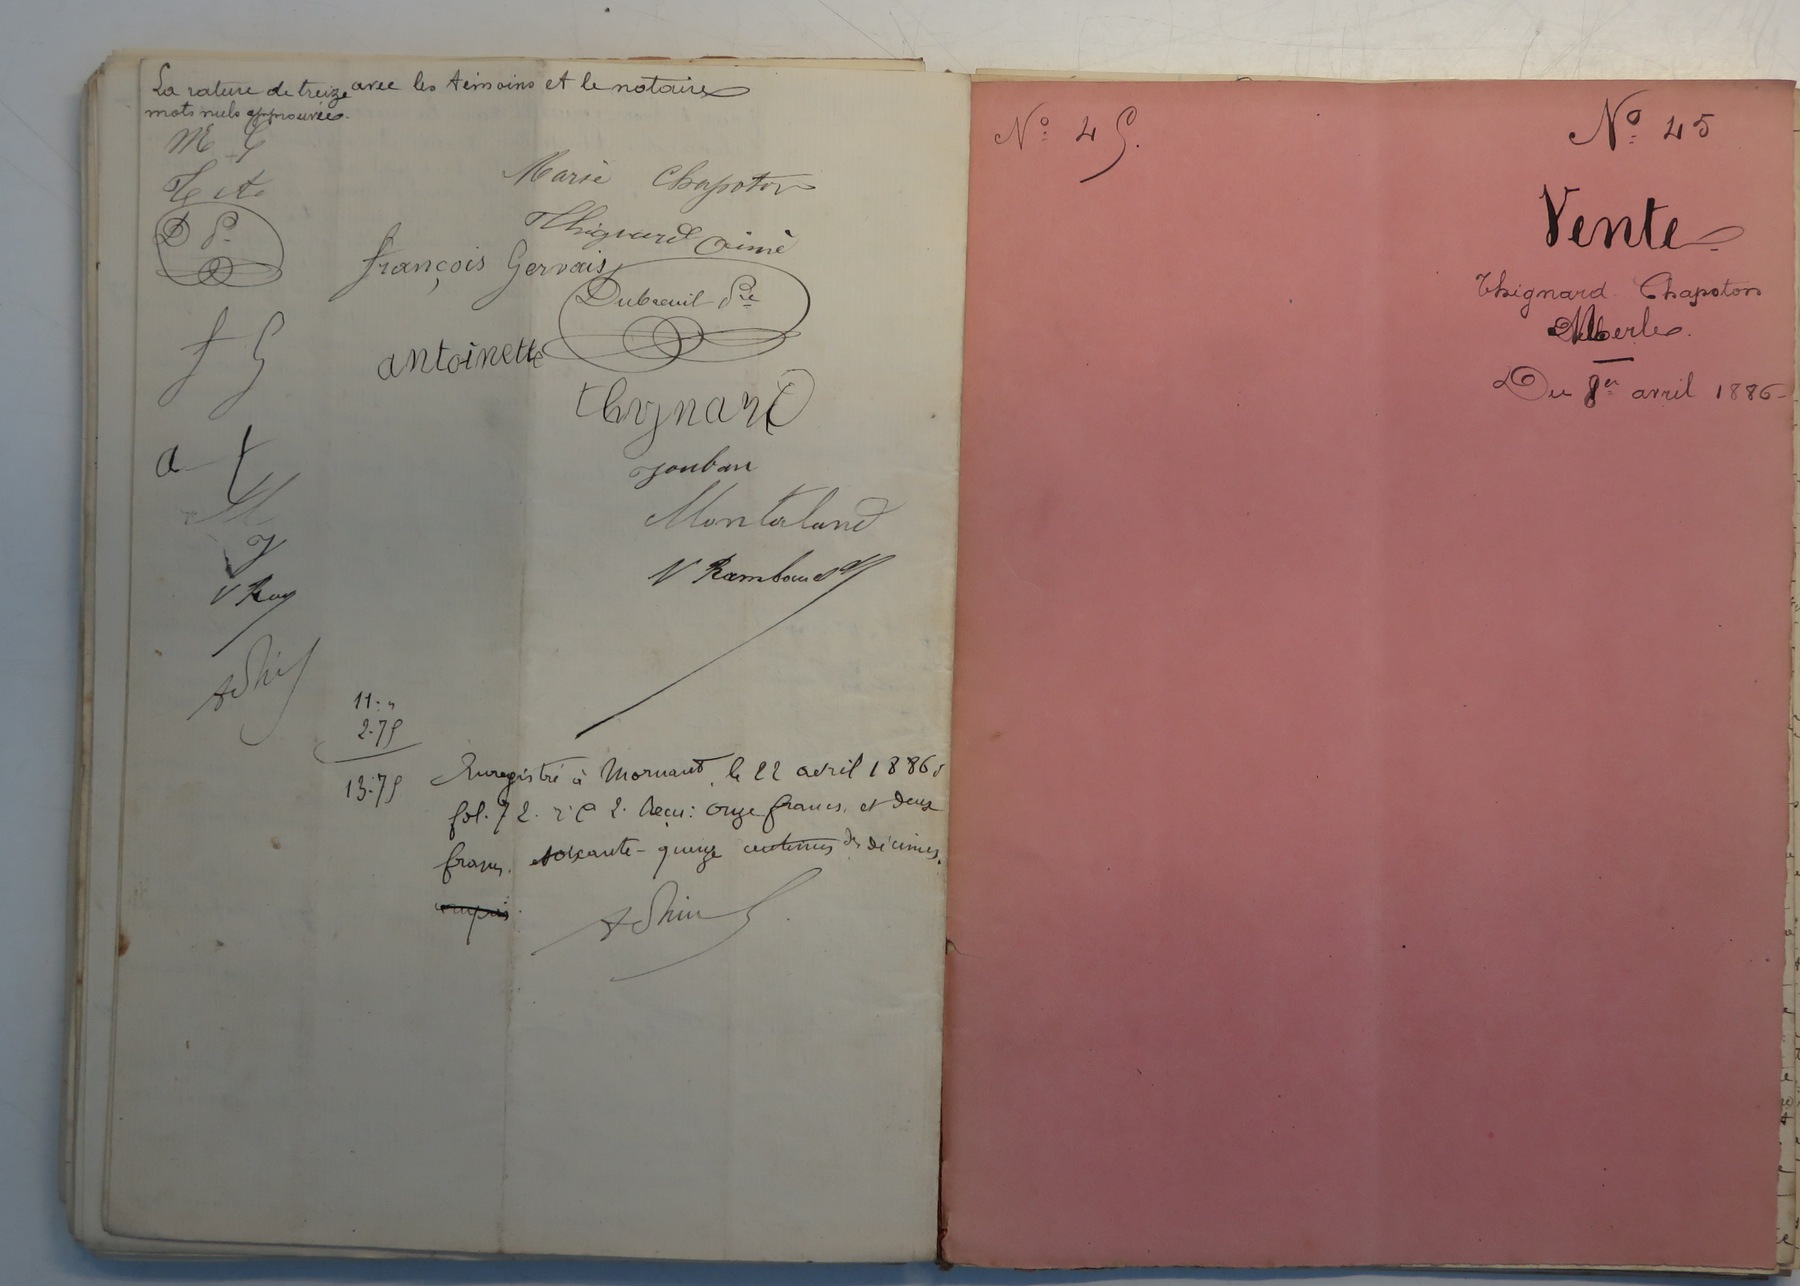 avec les témoins et le notaire
La rature de treize
mots nuls approuvée.
M G
Marie Chapoton
Thignard aimé
D Pre
françois Gervais
Dubreuil Pre
f G
antoinette
thignard
a t
jouban
Montaland
J
V Rambaud
11. "
2.75
13.75
Enregistré à Mornant, le 22 avril 1886,
fol. 72. r° C 2. Reçu: onze francs, et deux
francs soixante-quinze centimes de décimes.
N° 45.
N° 45
Vente
Thignard Chapoton
Du 8er avril 1886